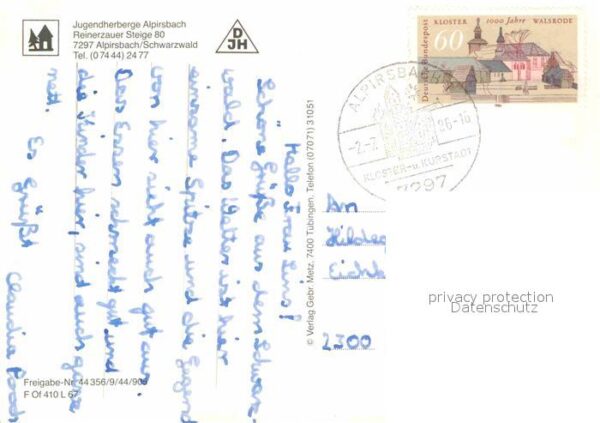 Jugendherberge Alpirsbach
Reinerzauer Steige 80
7297 Alpirsbach/Schwarzwald
Tel. (0 74 44) 24 77
DJH
Deutsche Bundespost
60
KLOSTER 1000 Jahre WALSRODE
ALPIRSBACH
-2.-7. 86-16
KLOSTER- u. KURSTADT
7297
Hallo Frau
Schöne Grüße aus dem Schwarz-
wald. Das Wetter ist hier
einsame Spitze und die Gegend
von hier sieht auch gut aus.
Das Essen schmeckt gut und
die Kinder hier, sind auch ganz
nett. Es grüßt
Claudia
© Verlag Gebr. Metz, 7400 Tübingen, Telefon (07071) 31051
An
2300
Freigabe-Nr. 44 356/9/44/905
F Of 410 L 67
privacy protection
Datenschutz